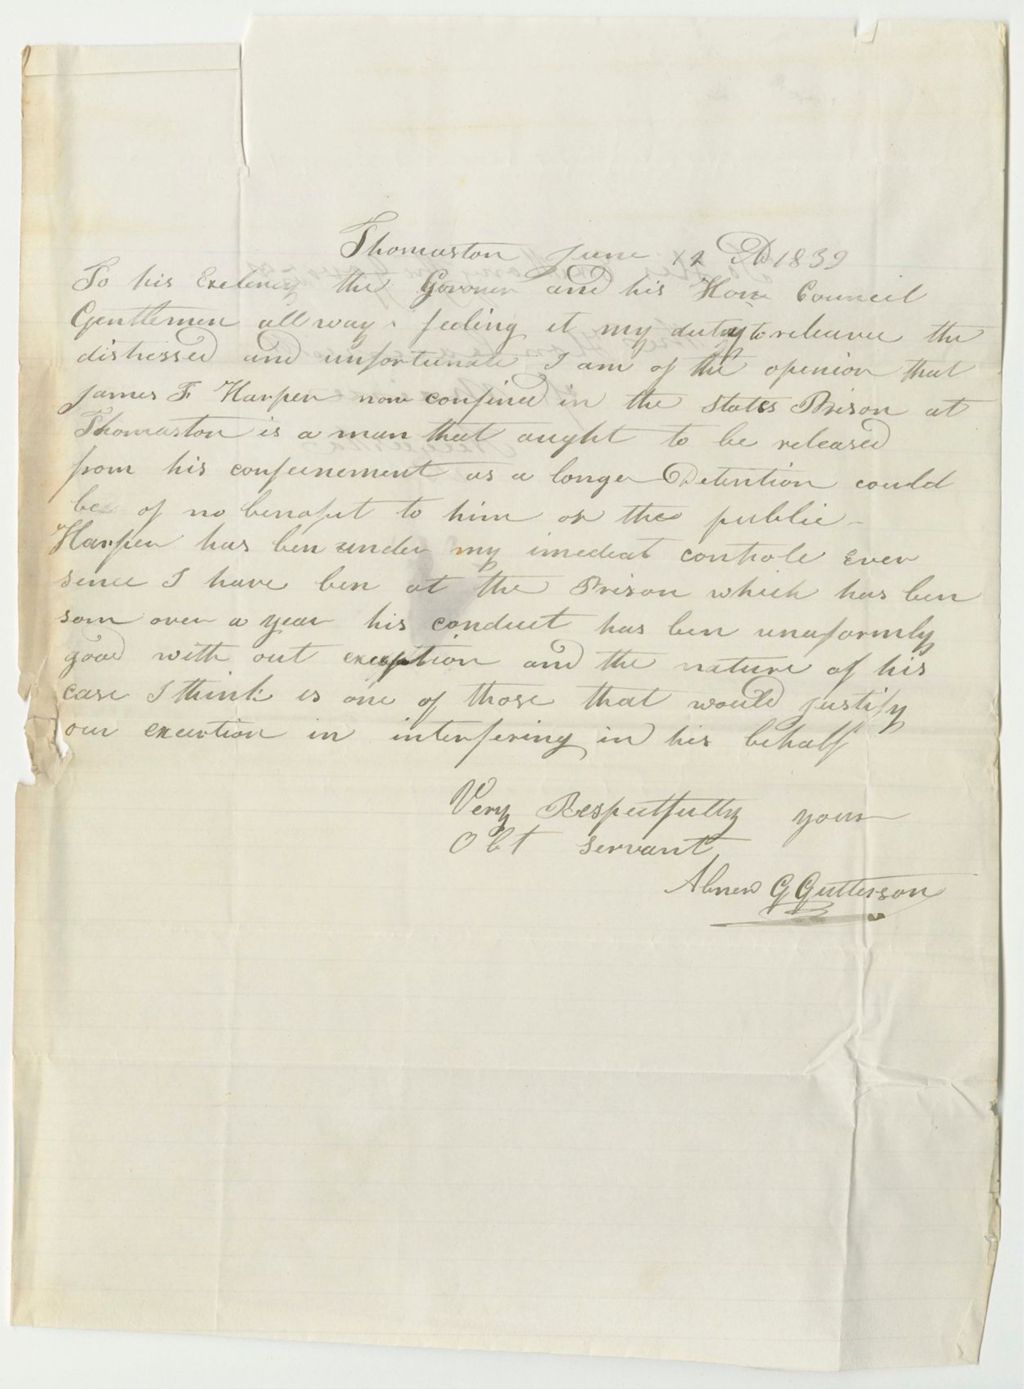 Thomaston June 12 AD 1839
To his Exelency the Govoner and his Hone Council
Gentlemen allways feeling it my duty to releave the
distressed and unfortunate I am of the openion that
James F Harper now confined in the States Prison at
Thomaston is a man that aught to be released
from his confeinement as a longer Detention could
be of no benafit to him or the public
Harper has ben under my imediat controle Ever
sence I have ben at the Prison which has ben
som over a year his conduct has ben unaformly
good with out exception and the nature of his
case I think is one of those that would justify
our exertion in interfering in his behalf
Very Respectfully your
Obt servant
Abner G Gutterson